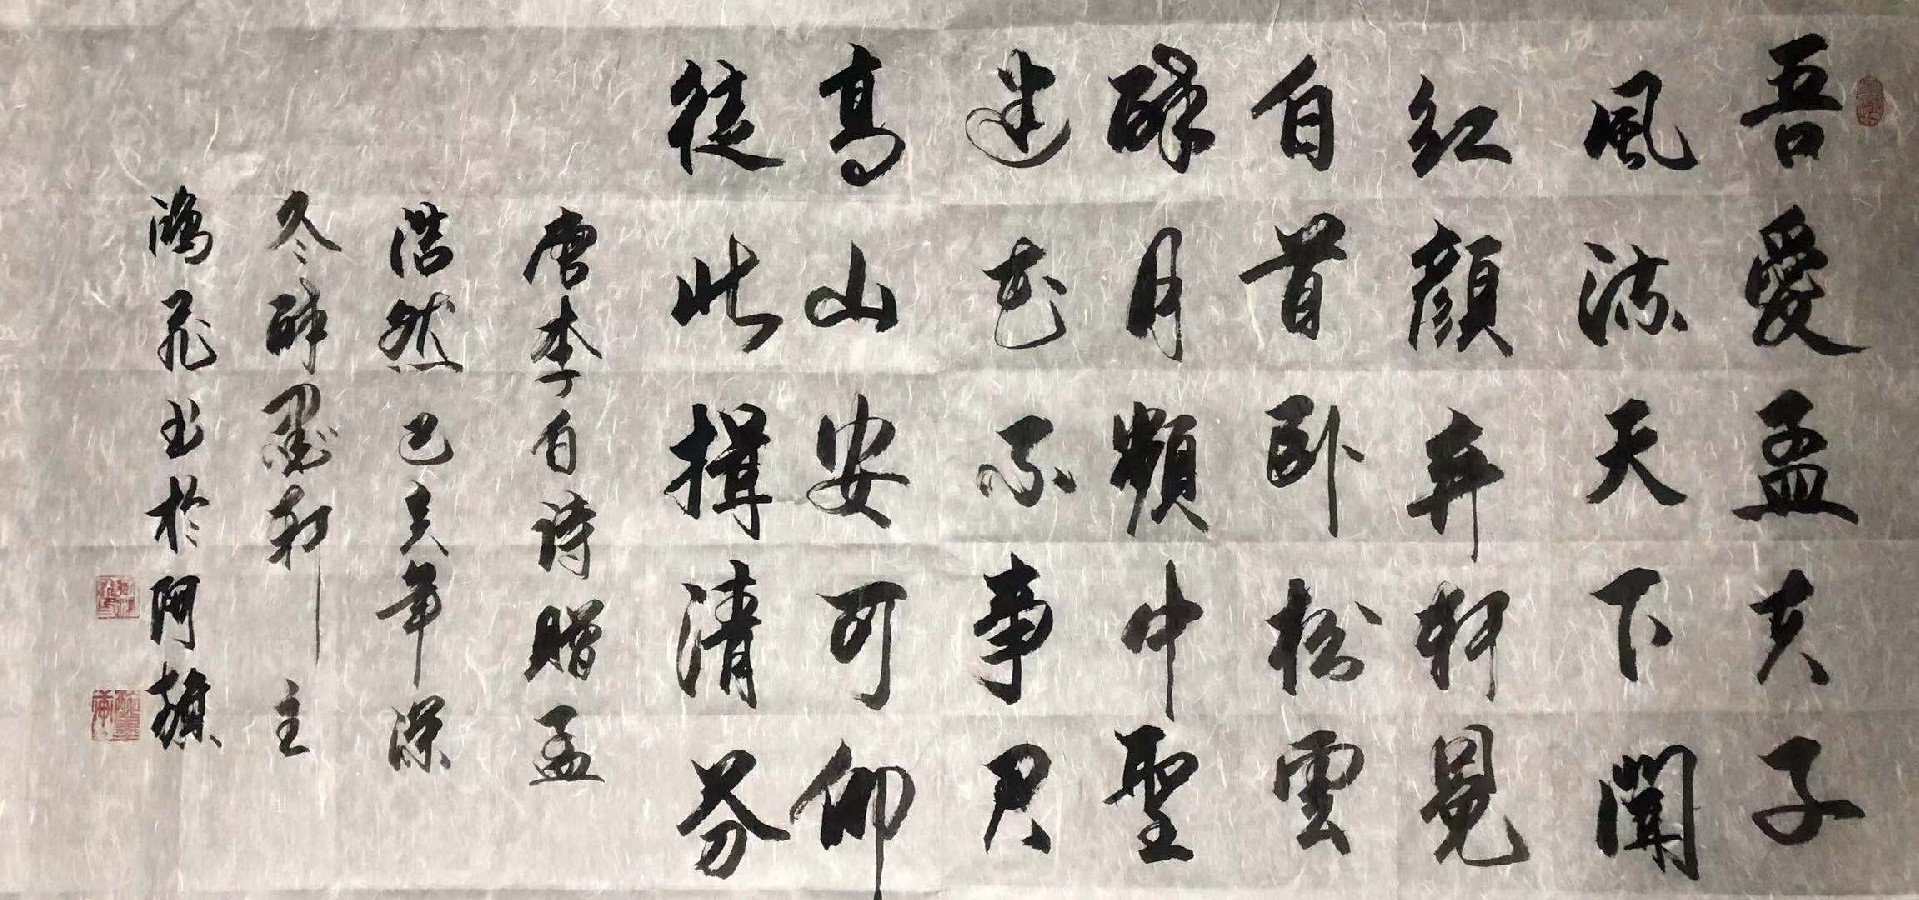 吾愛孟夫子
風流天下聞
紅顏弃軒冕
白首卧松雲
醉月頻中聖
迷花不事君
高山安可仰
徒此揖清芬
唐李白诗赠孟
浩然己亥年深
冬醉墨軒主
鴻飛书於阿旗